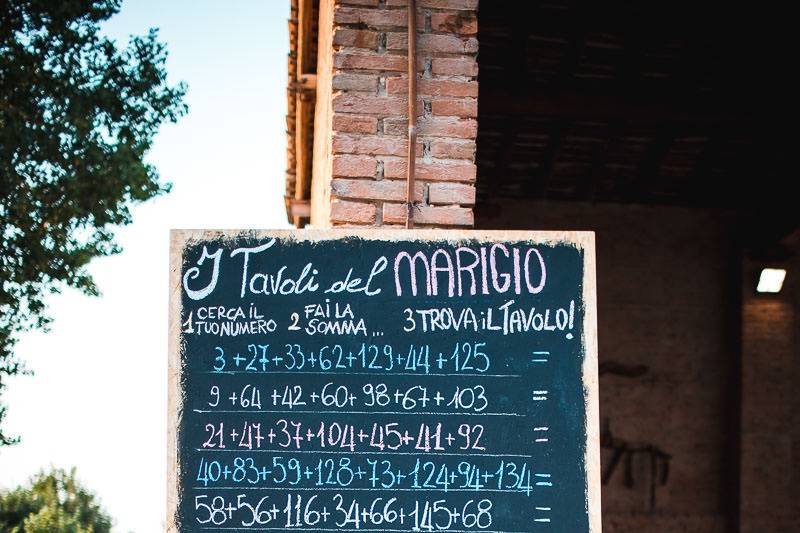 I Tavoli del MARIGIO
1 CERCA IL TUO NUMERO 2 FAI LA SOMMA... 3 TROVA iL TAVOLO!
3+27+33+62+129+44+125 =
9+64+42+60+98+67+103 =
21+47+37+104+45+41+92 =
40+83+59+128+73+124+94+134=
58+56+116+34+66+145+68 =